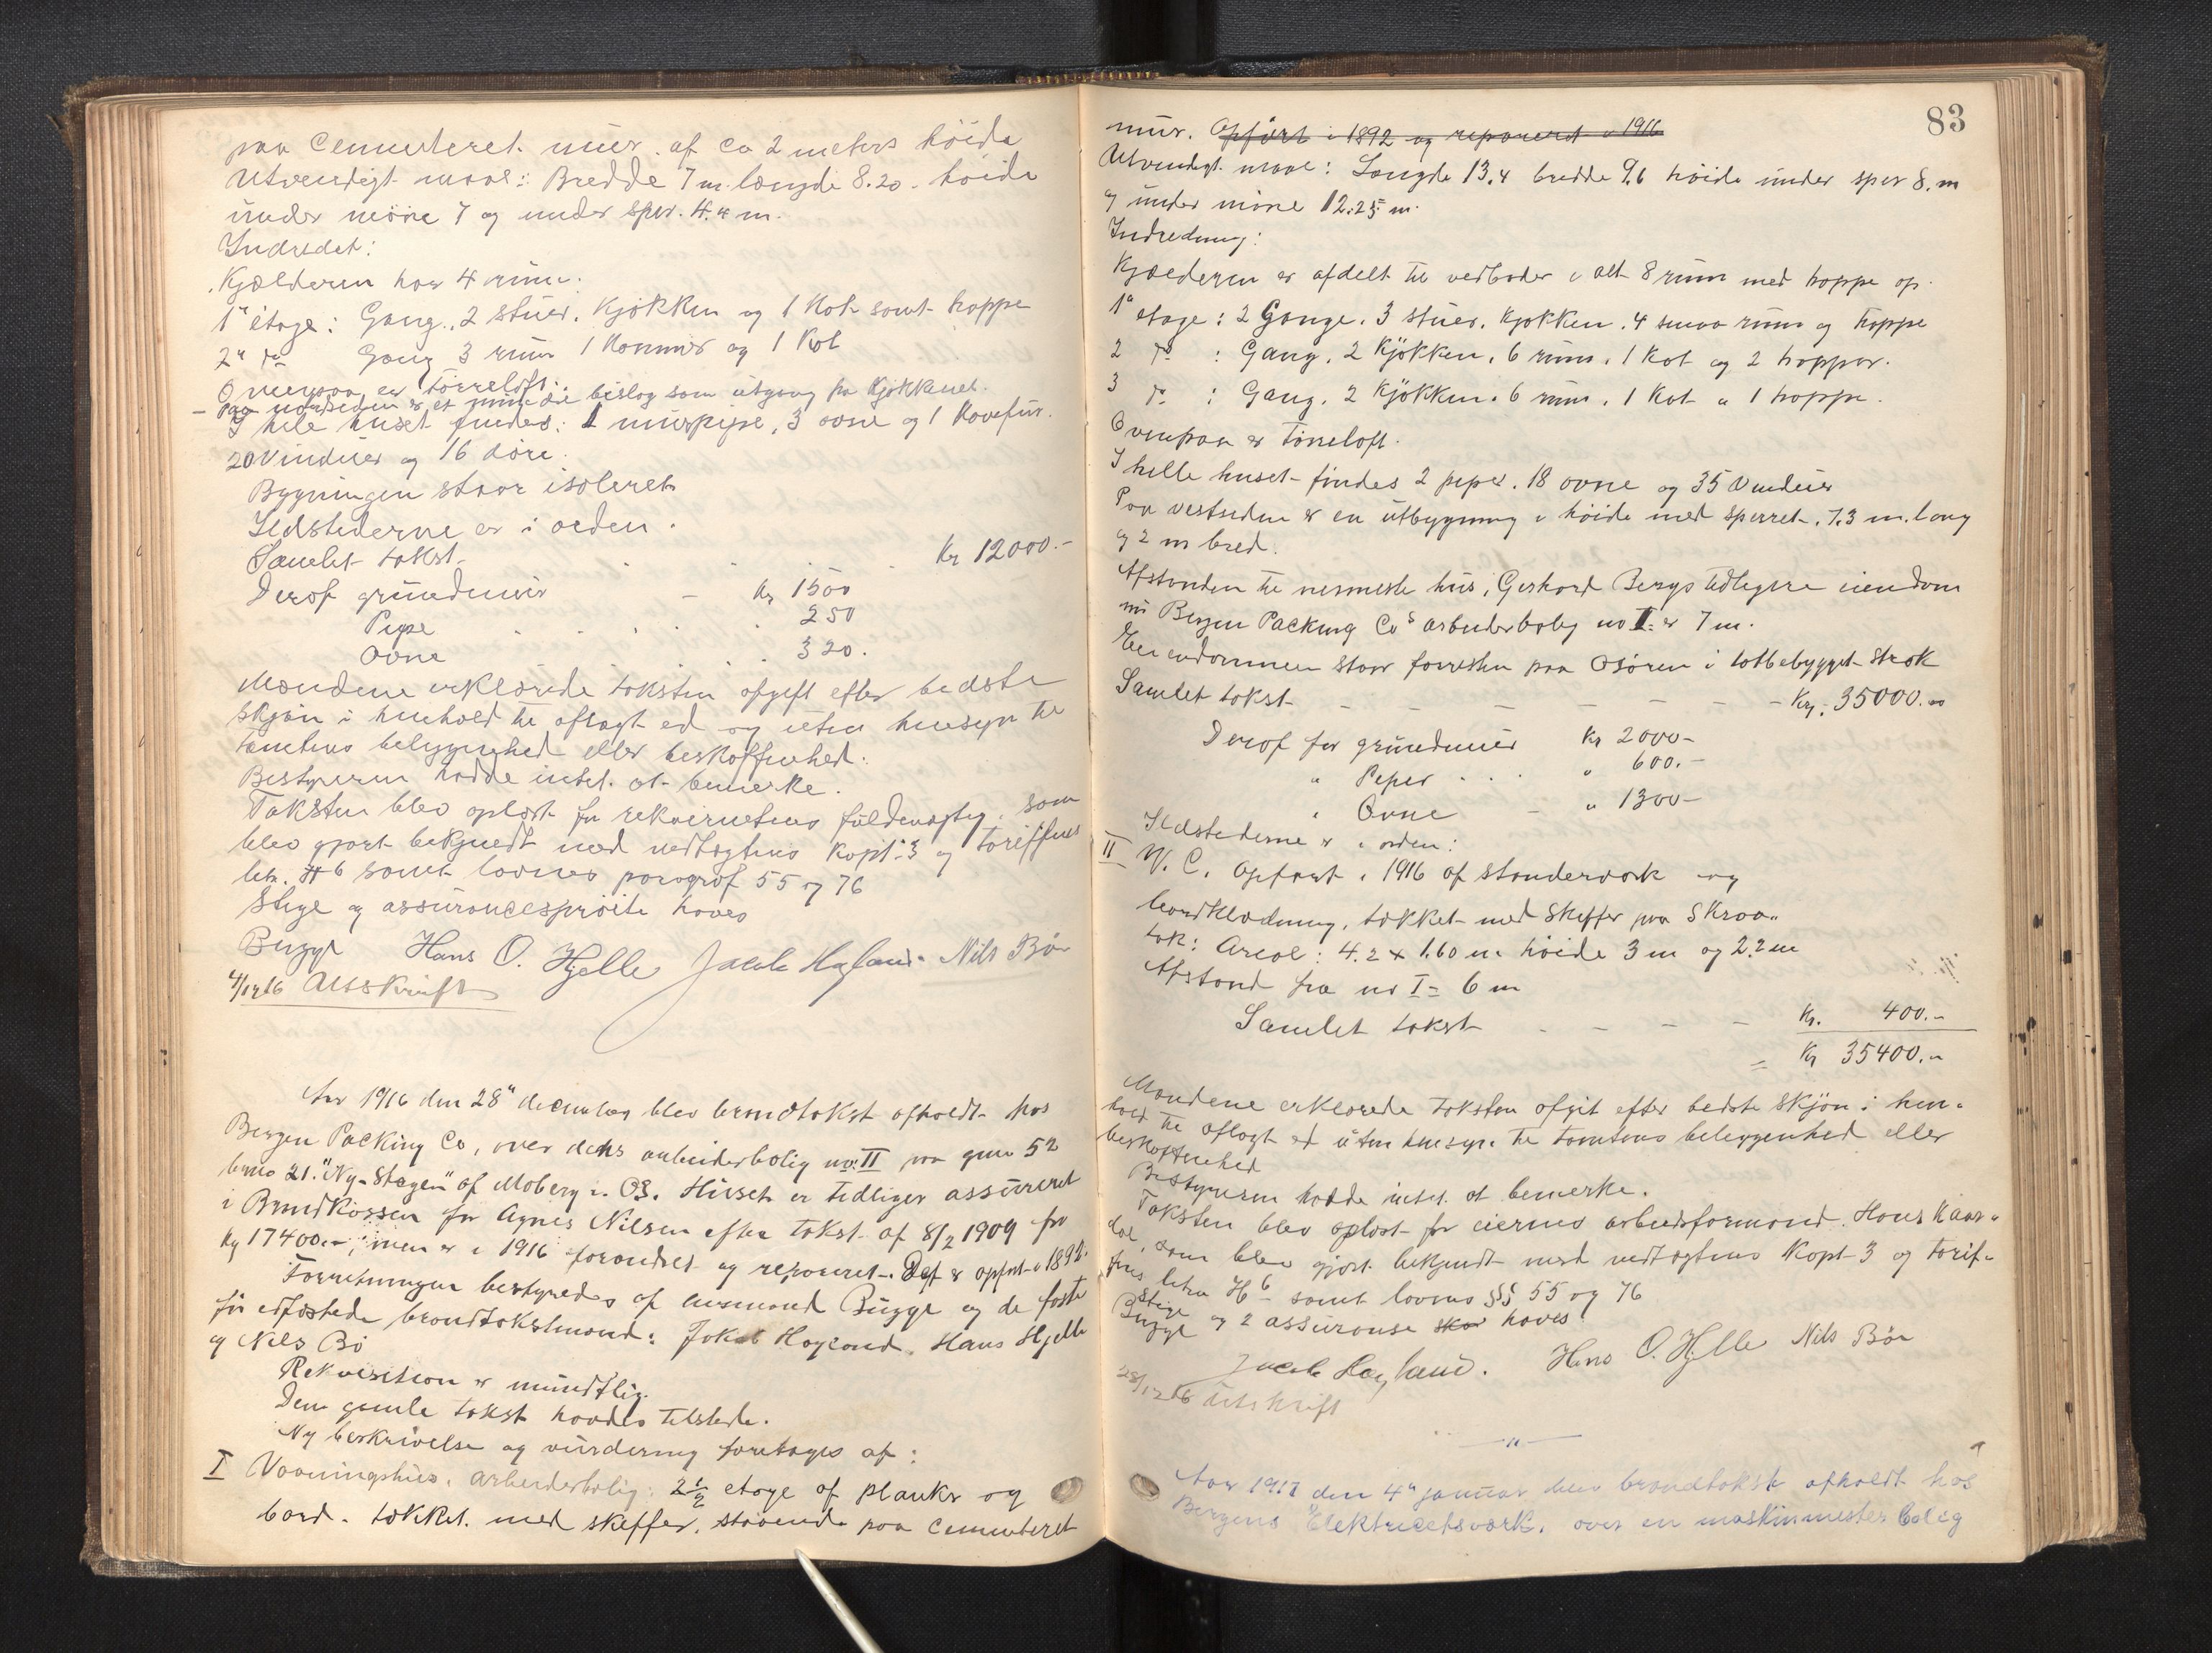 paa cementeret mur af ca 2 meters höide
Utvendigt maal: Bredde 7 m. længde 8.20. höide
under möne 7 og under sper. 4.4 m.
Indredet:
Kjælderen har 4 rum.
1ª etage: Gang, 2 stuer, Kjøkken og 1 Kot samt trappe
2ª do Gang 3 rum 1 Kammer og 1 Kot
Ovenpaa er törreloft.
- Paa nordsiden er et mindre bislag som utgang fra Kjøkkenet.
I hele huset findes: 1 murpipe, 3 ovne og 1 Kovefur.
20 Vinduer og 16 döre.
Bygningen staar isoleret
Ildstederne er i orden.
Samlet takst - Kr 12000.-
Deraf grundmur - Kr 1500
Pipe 250
Ovne 320.
Mændene erklærede taksten afgit efter bedste
skjøn i henhold til aflagt ed og uten hensyn til
tomtens beliggenhed eller beskaffenhed.
Bestyreren hadde intet at bemerke.
Taksten blev oplæst for rekvirentens fuldmægtig, som
blev gjort bekjendt med vedtægtens Kapt. 3 og tariffens
litr. H 6 samt lovens paragraf 55 og 76
Stige og assurancesprøite haves
Bugge Hans O. Hjelle Jacob Hagland Nils Bö
4/1 1916 Utskrift
Aar 1916 den 28" december blev brandtakst afholdt hos
Bergen Packing Co, over dens arbeiderbolig no: II paa gno 52
bruno 21. "Ny-Stagen" af Moberg i Os. Huset er tidliger assureret
i Brandkassen for Agnes Nilsen efter takst af 8/2 1909 for
Kr 17400.-, men er i 1916 forandret og reparert. Det er opført i 1892.
Forretningen bestyredes af lensmand Bugge og de faste
før edfæstede brandtakstmænd: Jakob Hagland, Hans Hjelle
og Nils Bö
Rekvisition er mundtlig.
Den gamle takst havdes tilstede.
Ny beskrivelse og vurdering foretages af:
I Vaaningshus, arbeiderbolig: 2 1/2 etage af planker og
bord. tækket med skiffer, staaende paa cementeret
83
mur. Opført i 1892 og reparert i 1916
Utvendigt maal: Længde 13,4 bredde 9,6 höide under sper 8. m
og under möne 12.25 m.
Indredning:
Kjælderen er afdelt til vedboder i alt 8 rum med trappe op.
1ª etage: 2 Gange. 3 stuer. Kjøkken. 4 smaa rum og trappe
2 do : Gang. 2 Kjøkken. 6 rum. 1 Kot og 2 trapper.
3 do : Gang. 2 Kjøkken. 6 rum. 1 Kot " 1 trappe.
Ovenpaa er törreloft.
I hele huset findes 2 piper. 18 ovne og 35 Vinduer
Paa vestsiden er en utbygning i höide med sperret. 7.3 m. lang
og 2 m bred.
Afstanden til nermeste hus, Gerhard Bergs tidligere eiendom
nu Bergen Packing Co's arbeiderbolig no I er 7 m.
Eiendommen staar forresten paa Osøren i tætbebygget strøk
Samlet takst - - - - - Kr. 35000.00
Deraf for grundmur Kr 2000-
" Piper " 600.-
" Ovne - " 1300-
Ildstederne er i orden:
II W. C. opført i 1916 af standerværk og
bordklædning, tækket med skiffer paa skraa-
tak: Areal: 4.2 x 1.60 m. höide 3 m og 2.2 m
Afstand fra no I = 6 m
Samlet takst - - - - Kr. 400.-
= Kr 35400.-
Mændene erklærede taksten afgit efter bedste skjøn i hen-
hold til aflagt ed uten hensyn til tomtens beliggenhed eller
beskaffenhed
Bestyreren hadde intet at bemerke.
Taksten blev oplæst for eierens arbeidsformand, Hans Kaar-
dal, som blev gjort bekjendt med vedtægtens Kapt 3 og tarif-
fens litra H 6 samt lovens §§§ 55 og 76
Stige og 2 assuranse skar haves
Bugge Jacob Hagland. Hans O. Hjelle Nils Bö
28/12 16 Utskrift
-"-
Aar 1917 den 4" januar blev brandtakst afholdt hos
Bergens Elektricitetsværk, over en maskinmester bolig